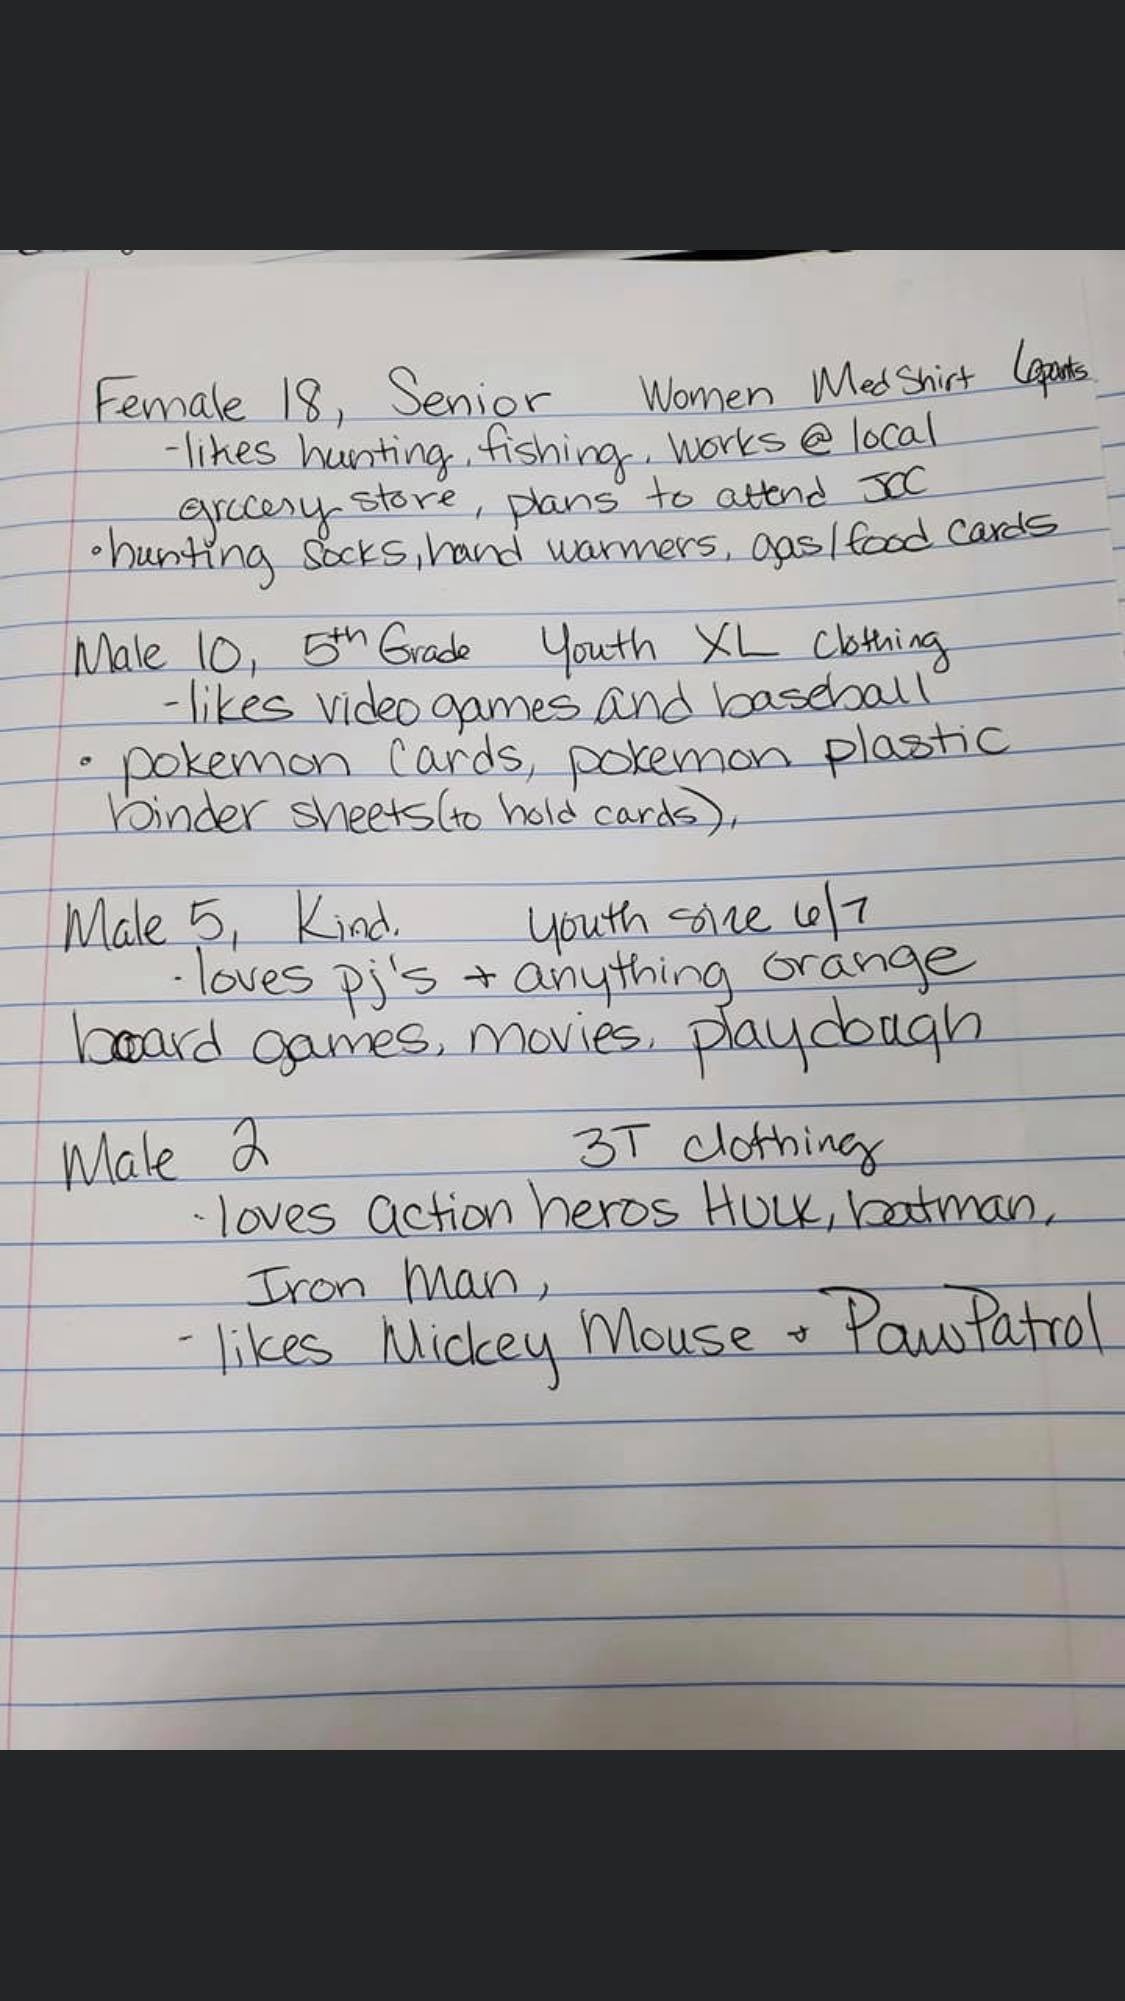 Female 18, Senior Women Med Shirt 6 pants
-likes hunting, fishing, works @ local
grocery store, plans to attend JCC
•hunting socks, hand warmers, gas/food cards
Male 10, 5th Grade Youth XL Clothing
-likes video games and baseball
• pokemon cards, pokemon plastic
binder sheets (to hold cards),
Male 5, Kind. youth size 6/7
·loves pj's + anything orange
board games, movies, playdough
Male 2 3T clothing
·loves action heros Hulk, batman,
Iron Man,
- likes Mickey Mouse + Paw Patrol